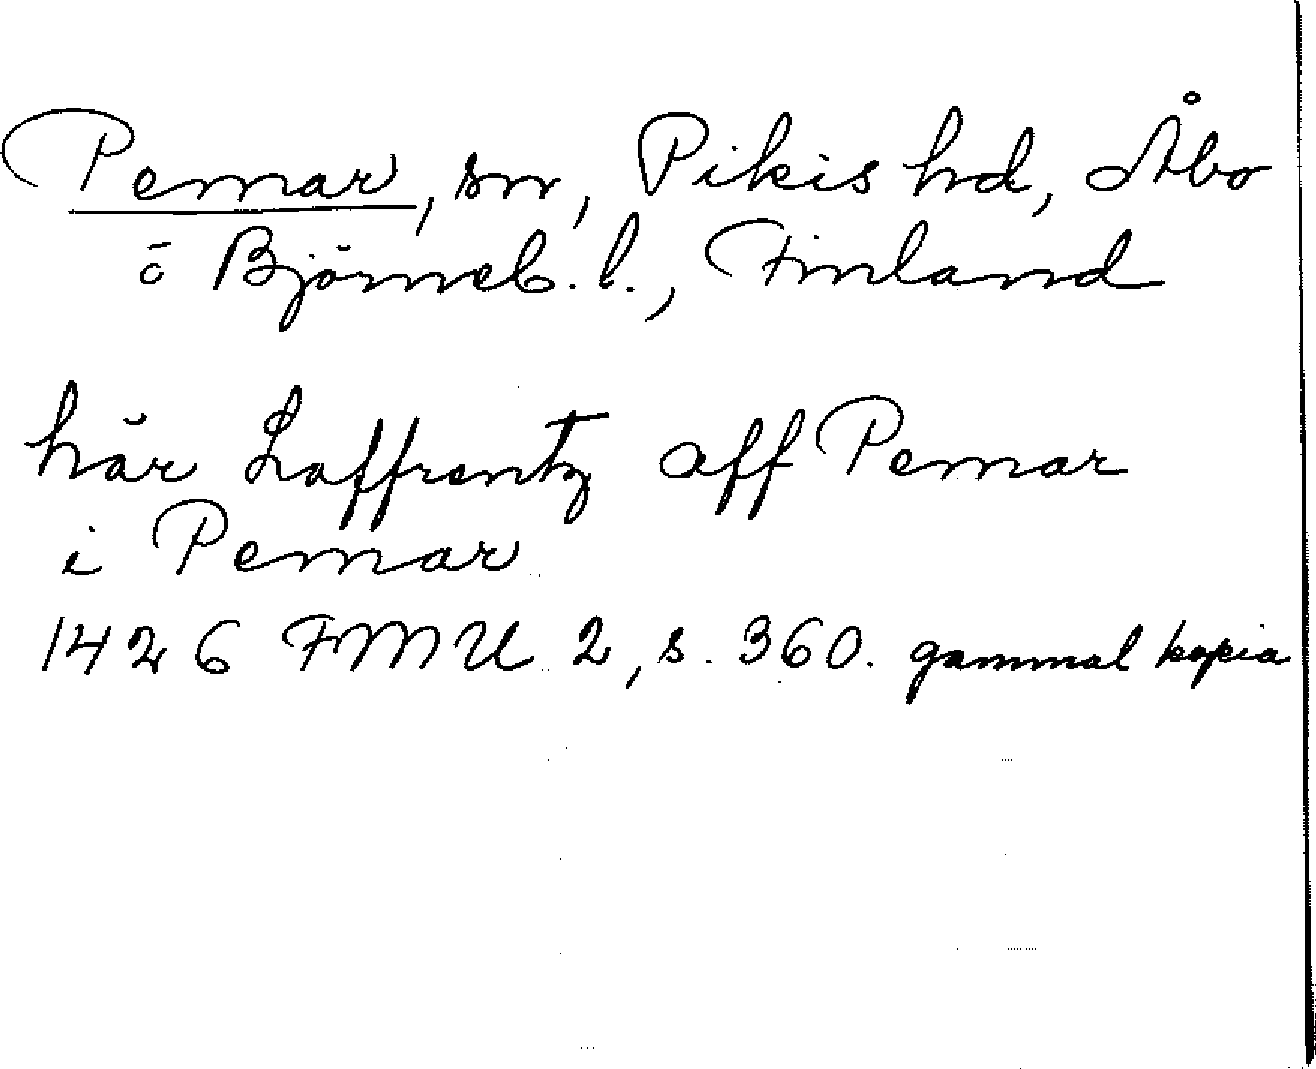 Pemar, sn, Pikis hd, Åbo
o Björneb. l., Finland
här Laffrentz aff Pemar
i Pemar
1426 FMU 2, s. 360. gammal kopia